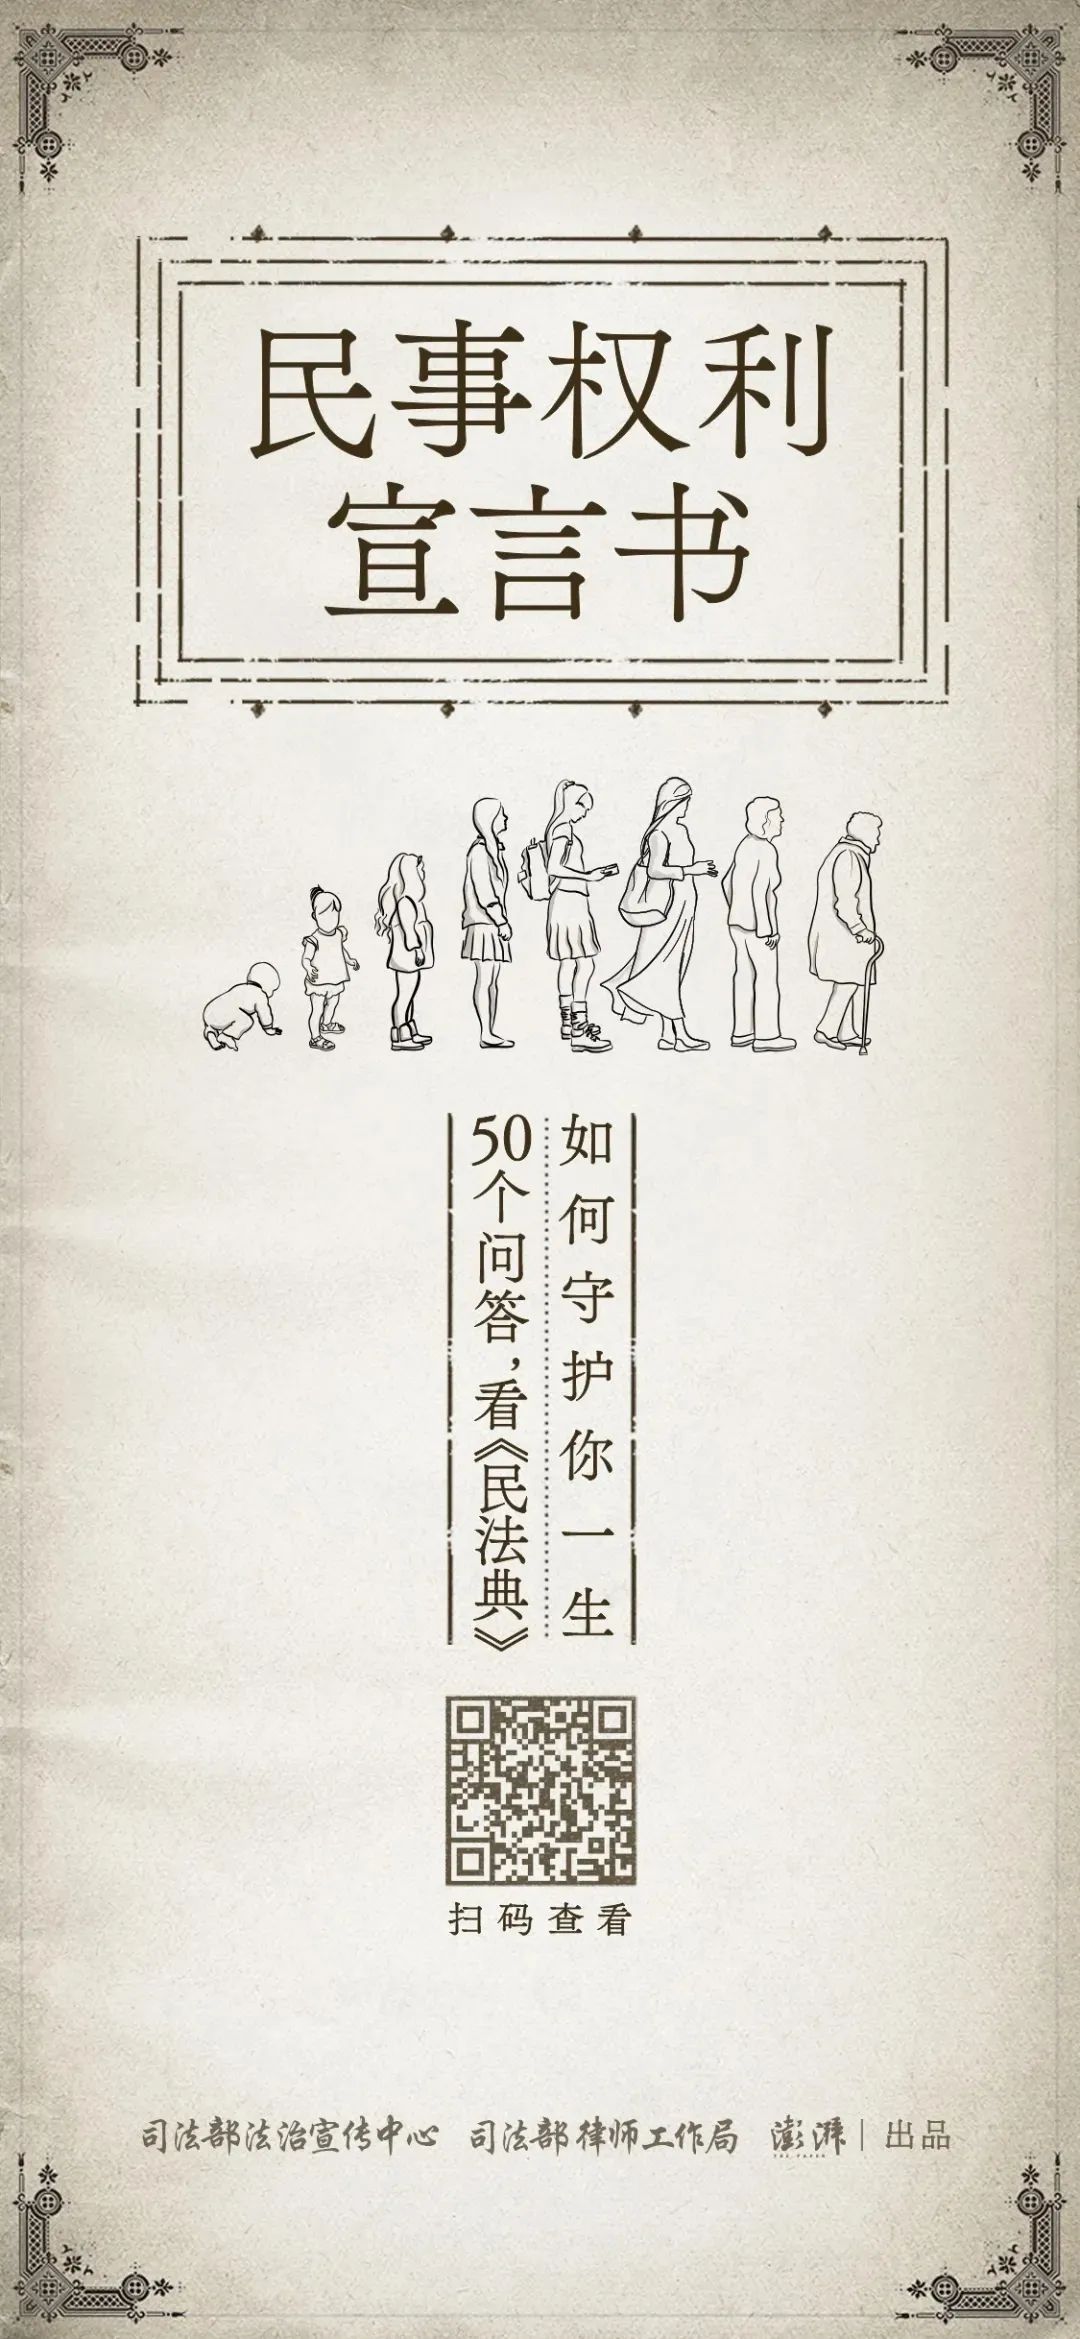 民事权利
宣言书
50个问答，看《民法典》
如何守护你一生
扫码查看
司法部法治宣传中心 司法部律师工作局 澎湃 | 出品
THE PAPER